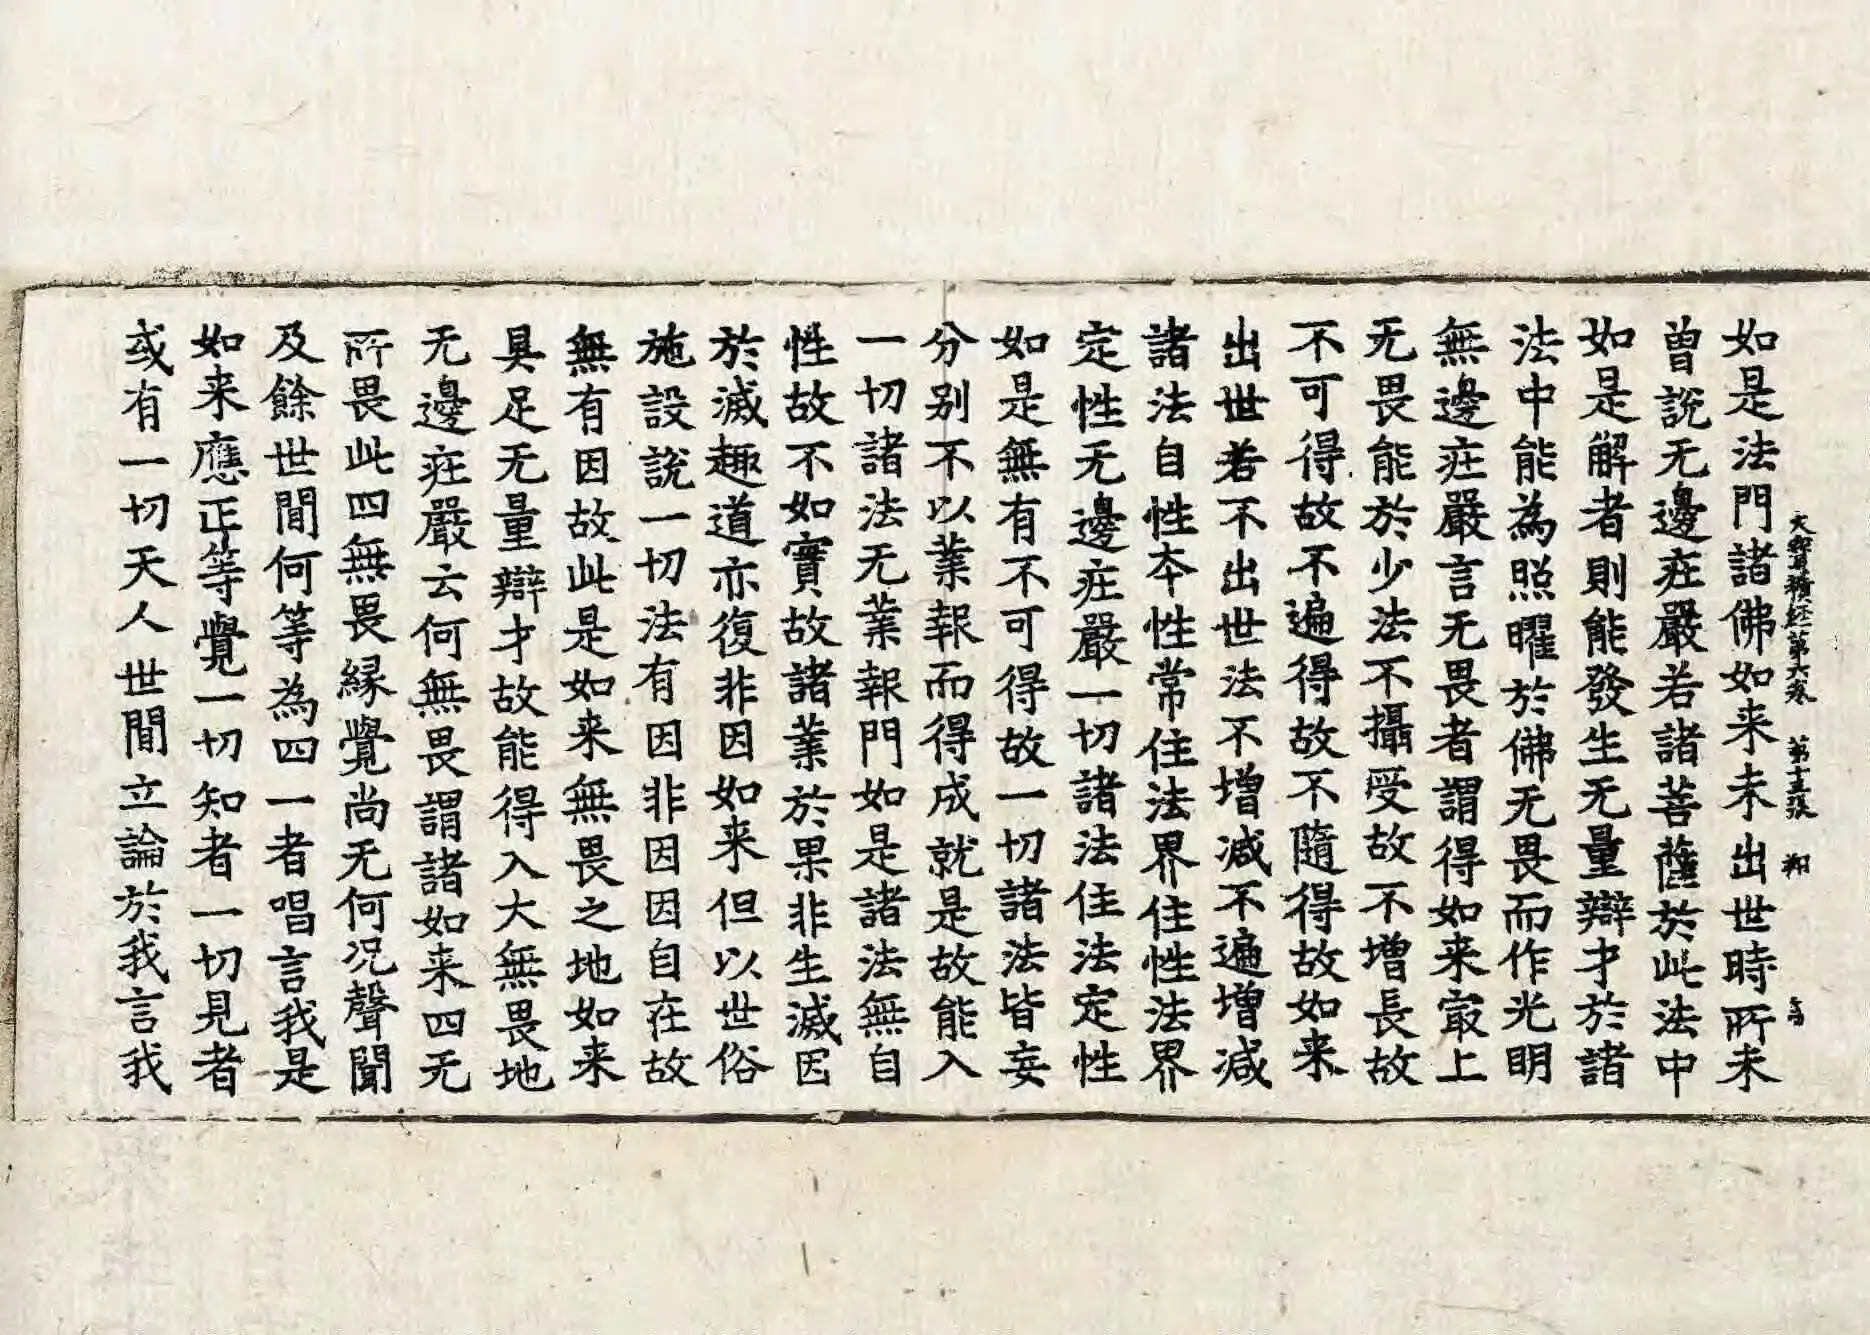 大寶積經第六卷 第十五張 翔
如是法門諸佛如来未出世時所未
曾說无邊疘嚴若諸菩薩於此法中
如是解者則能發生无量辯才於諸
法中能為照曜於佛无畏而作光明
無邊疘嚴言无畏者謂得如来㝡上
无畏能於少法不攝受故不增長故
不可得故不遍得故不隨得故如来
出世若不出世法不增减不遍增减
諸法自性本性常住法界住性法界
定性无邊疘嚴一切諸法住法定性
如是無有不可得故一切諸法皆妄
分别不以業報而得成就是故能入
一切諸法无業報門如是諸法無自
性故不如實故諸業於果非生滅因
於滅趣道亦復非因如来但以世俗
施設說一切法有因非因因自在故
無有因故此是如来無畏之地如来
具足无量辯才故能得入大無畏地
无邊疘嚴云何無畏謂諸如来四无
所畏此四無畏緣覺尚无何况聲聞
及餘世間何等為四一者唱言我是
如来應正等覺一切知者一切見者
或有一切天人世間立論於我言我